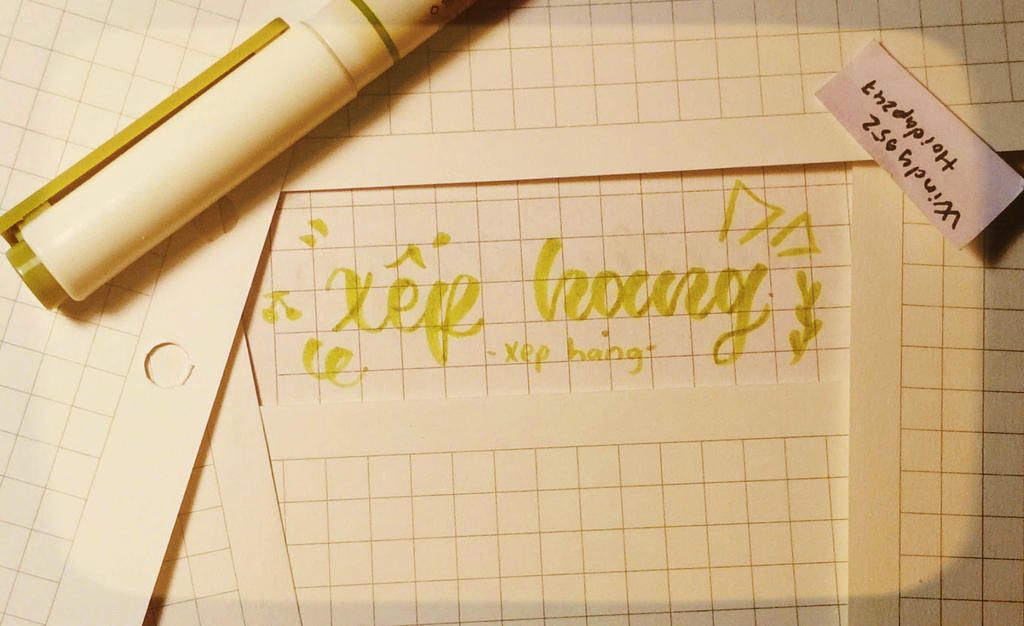 xếp hạng
- xếp hạng -
Windy952
Hoidap247